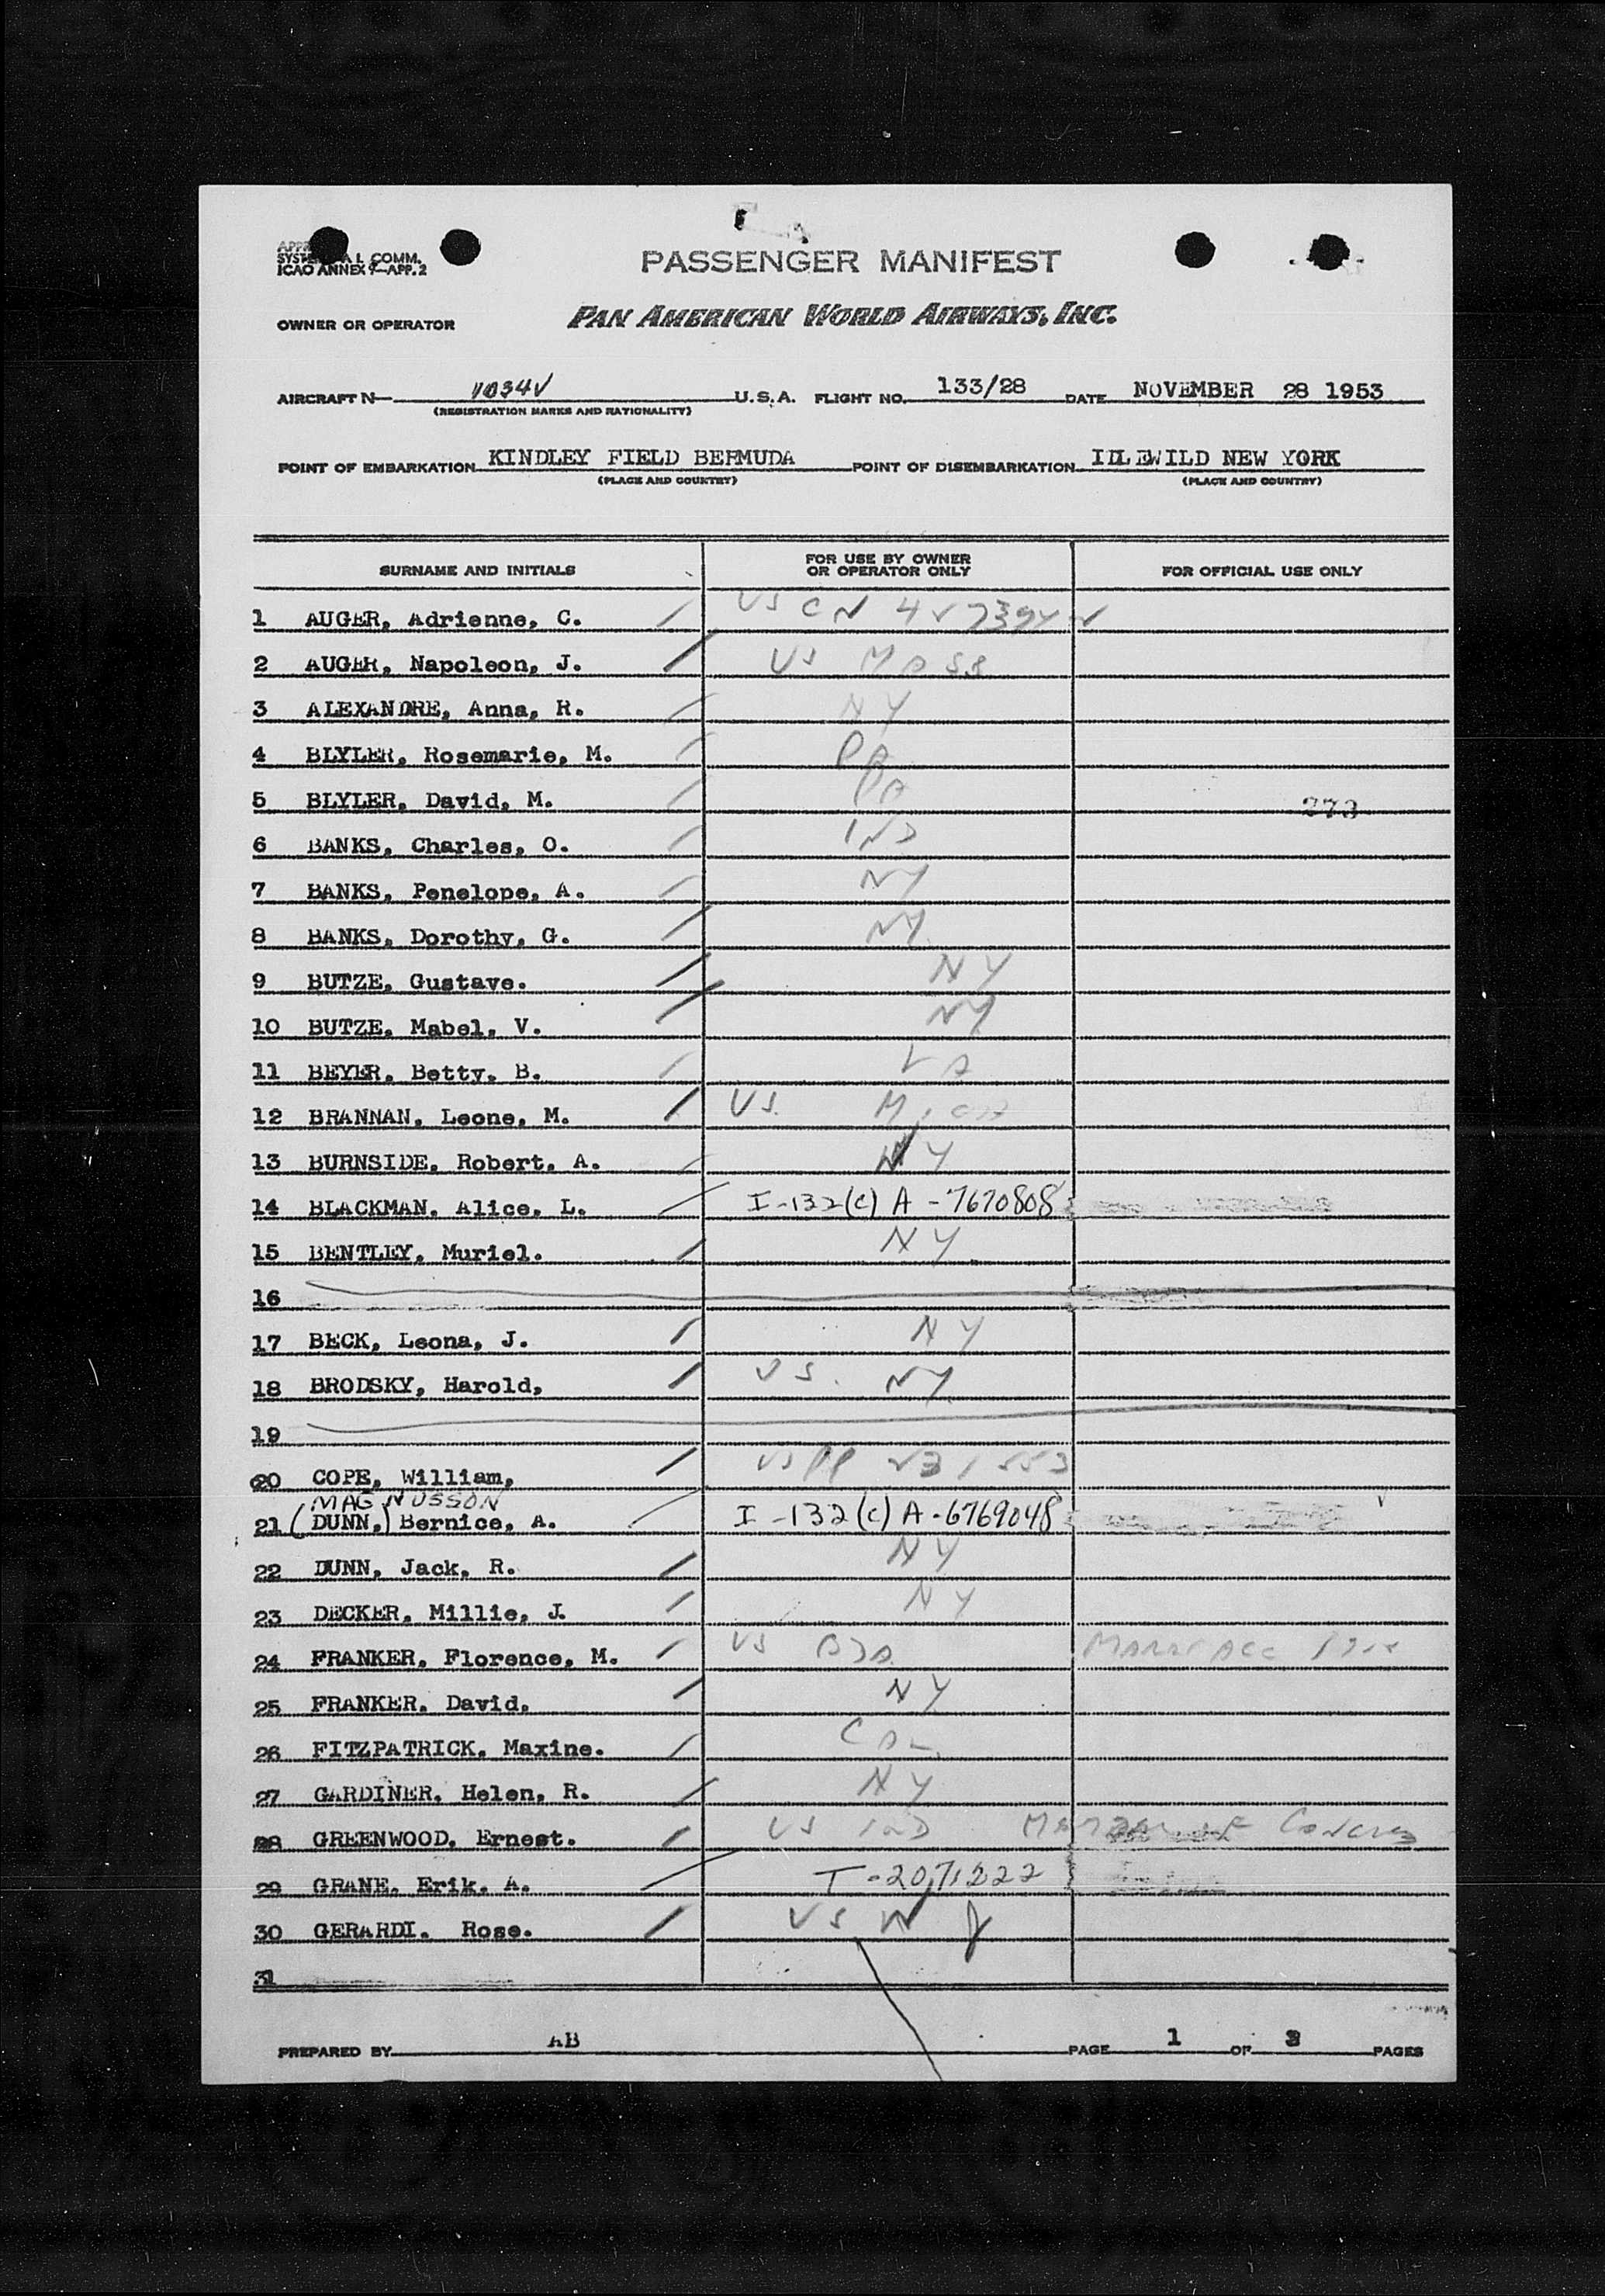 SYSTE AL COMM.
ICAO ANNEX 9—APP. 2
PASSENGER MANIFEST
OWNER OR OPERATOR PAN AMERICAN WORLD AIRWAYS, INC.
AIRCRAFT N— 1034V U.S.A. FLIGHT NO. 133/28 DATE NOVEMBER 28 1953
(REGISTRATION MARKS AND NATIONALITY)
POINT OF EMBARKATION KINDLEY FIELD BERMUDA POINT OF DISEMBARKATION IDLEWILD NEW YORK
(PLACE AND COUNTRY) (PLACE AND COUNTRY)
SURNAME AND INITIALS FOR USE BY OWNER OR OPERATOR ONLY FOR OFFICIAL USE ONLY
1 AUGER, Adrienne, C. US CN
2 AUGER, Napoleon, J. US MASS
3 ALEXANDRE, Anna, R. NY
4 BLYLER, Rosemarie, M. PA
5 BLYLER, David, M. PA 273
6 BANKS, Charles, O. IND
7 BANKS, Penelope, A. NY
8 BANKS, Dorothy, G. NY
9 BUTZE, Gustave. NY
10 BUTZE, Mabel, V. NY
11 BEYER, Betty, B.
12 BRANNAN, Leone, M. US
13 BURNSIDE, Robert, A. NY
14 BLACKMAN, Alice, L. I-132(c) A-7670808
15 BENTLEY, Muriel. NY
16
17 BECK, Leona, J. NY
18 BRODSKY, Harold, US. NY
19
20 COPE, William, US PP
MAGNUSSON
21 (DUNN,) Bernice, A. I-132(c) A-6769048
22 DUNN, Jack, R. NY
23 DECKER, Millie, J. NY
24 FRANKER, Florence, M. US
25 FRANKER, David, NY
26 FITZPATRICK, Maxine. CAL
27 GARDINER, Helen, R. NY
28 GREENWOOD, Ernest. US IND
29 GRANE, Erik, A. I-2071222
30 GERARDI, Rose. US NJ
31
PREPARED BY AB PAGE 1 OF 3 PAGES